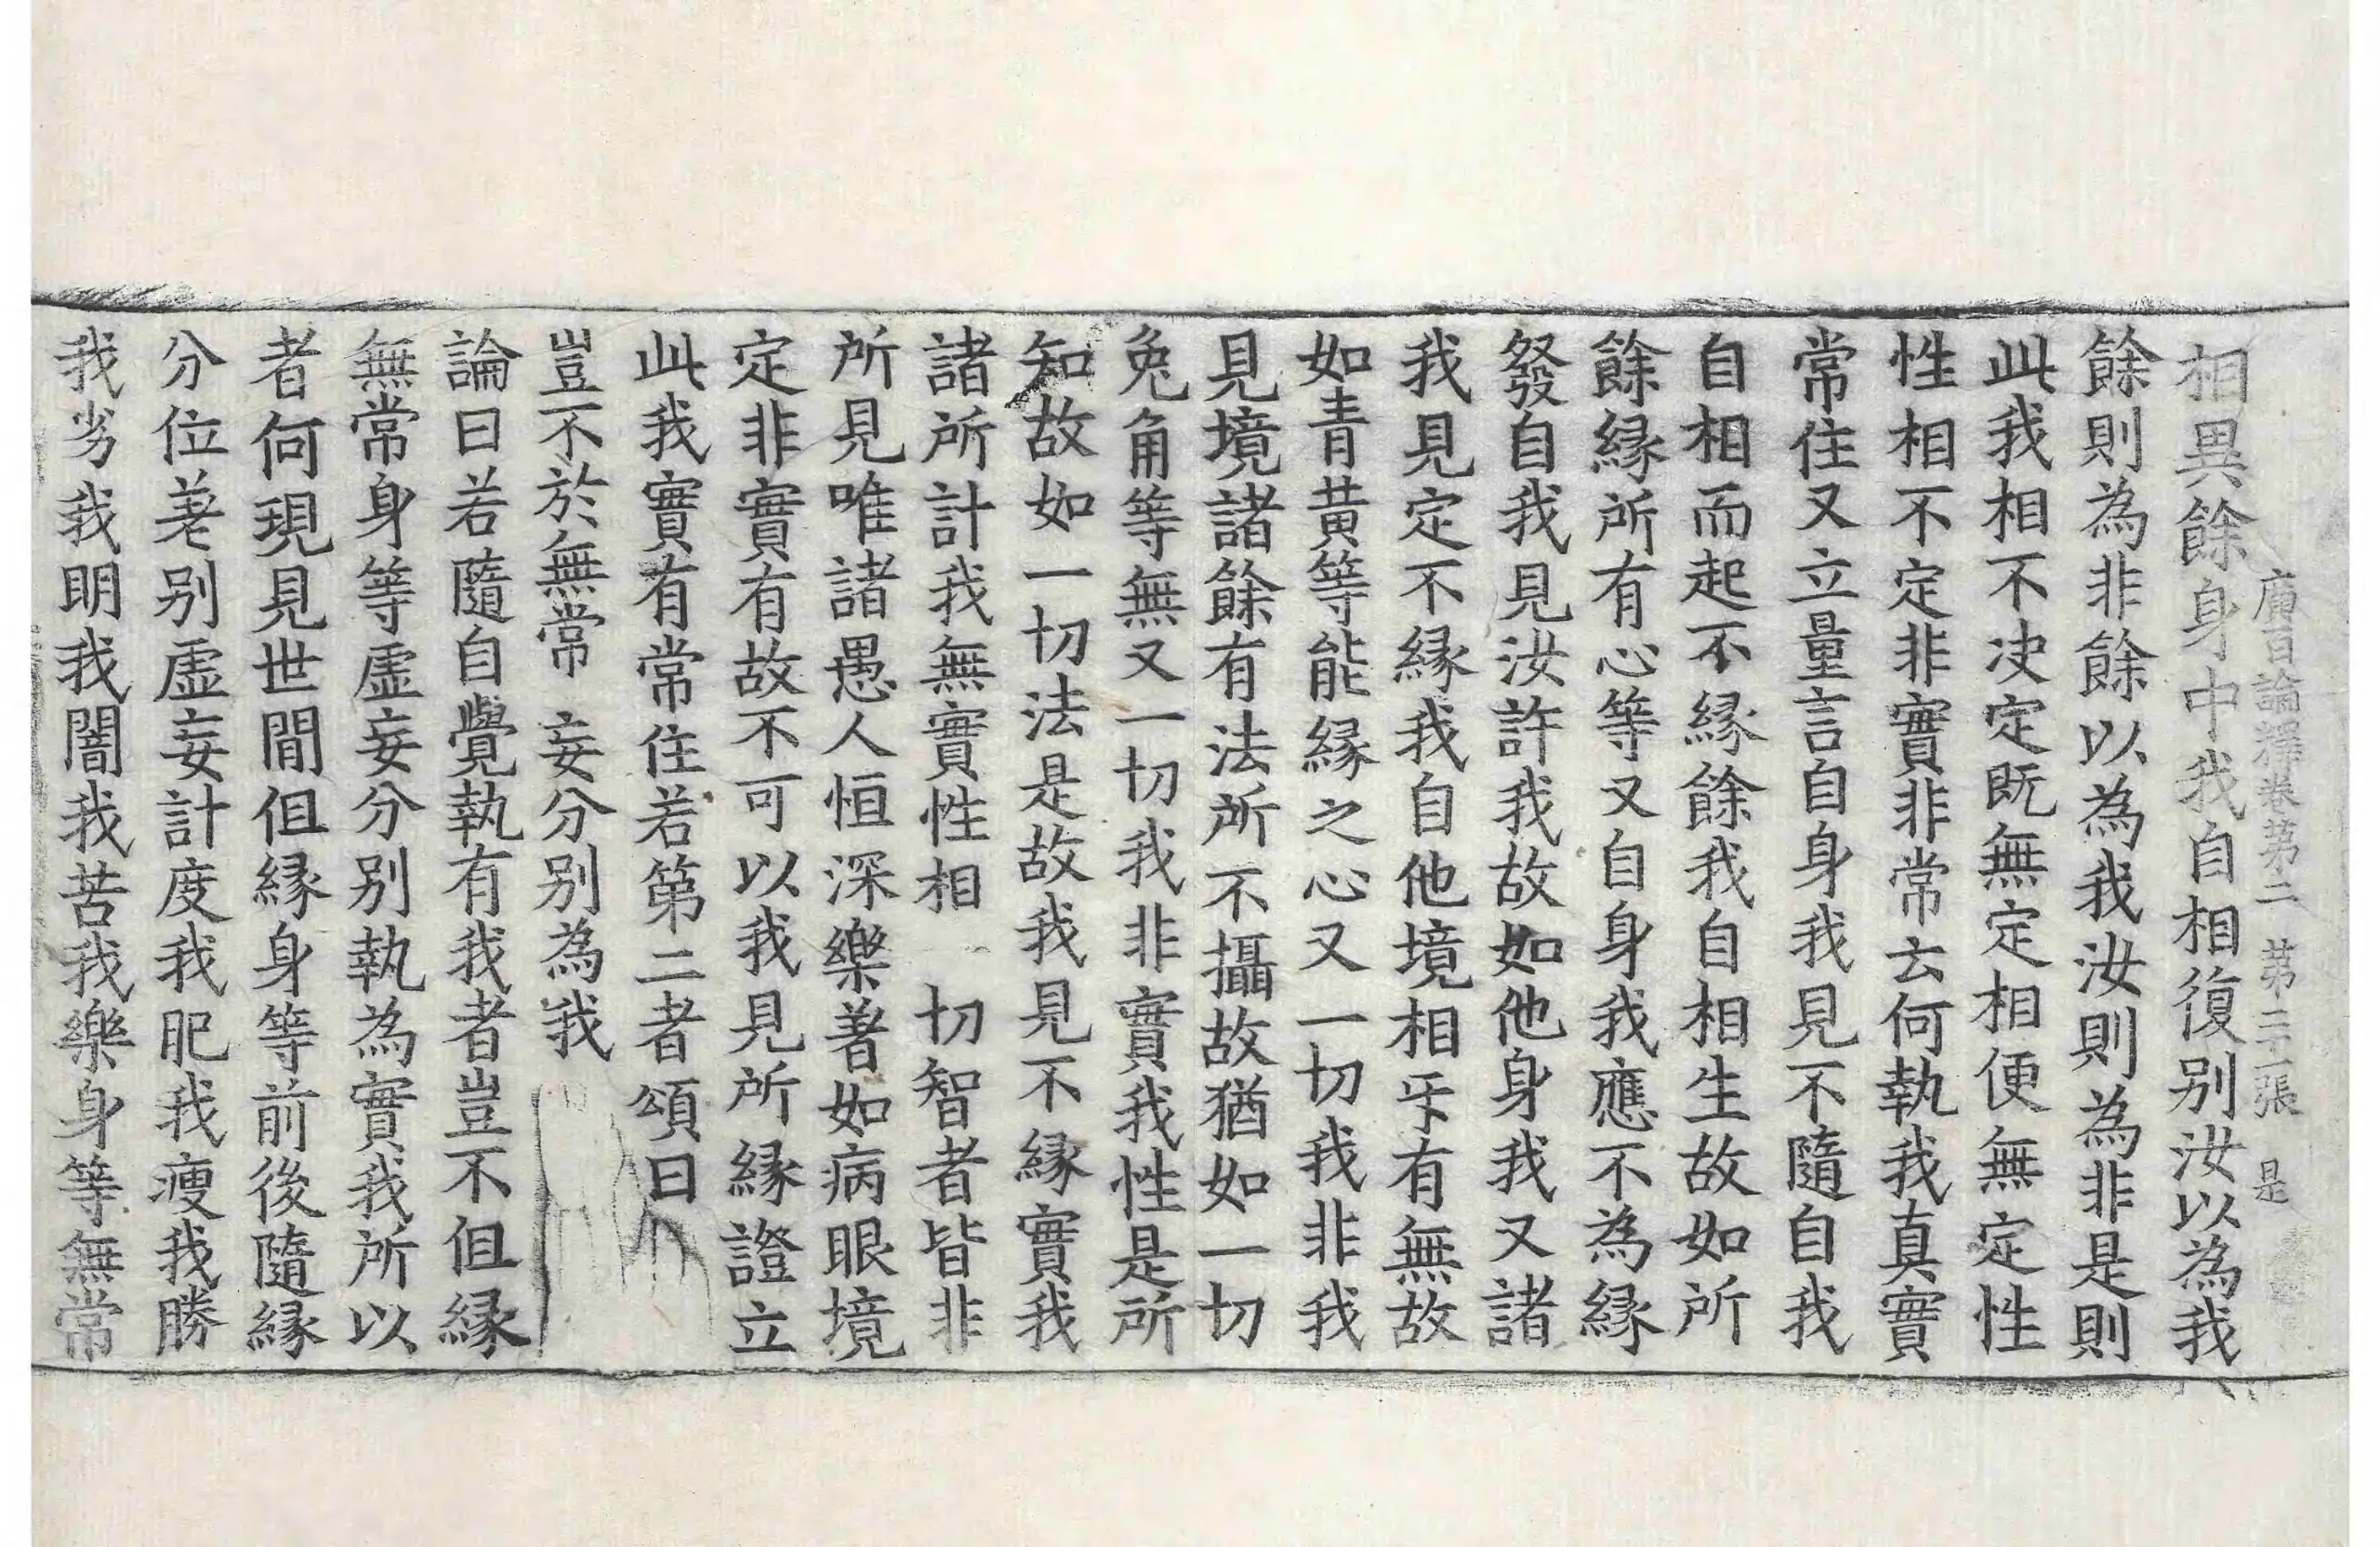 廣百論釋卷第二 第二張 是
相異餘身中我自相復別汝以為我
餘則為非餘以為我汝則為非是則
此我相不决定既無定相便無定性
性相不定非實非常云何執我真實
常住又立量言自身我見不隨自我
自相而起不緣餘我自相生故如所
餘緣所有心等又自身我應不為緣
發自我見汝許我故如他身我又諸
我見定不緣我自他境相㸦有無故
如青黃等能緣之心又一切我非我
見境諸餘有法所不攝故猶如一切
兔角等無又一切我非實我性是所
知故如一切法是故我見不緣實我
諸所計我無實性相 切智者皆非
所見唯諸愚人恒深樂著如病眼境
定非實有故不可以我見所緣證立
此我實有常住若第二者頌曰
豈不於無常 妄分別為我
論曰若隨自覺執有我者豈不但緣
無常身等虛妄分別執為實我所以
者何現見世間但緣身等前後隨緣
分位差別虛妄計度我肥我瘦我勝
我劣我明我闇我苦我樂身等無常